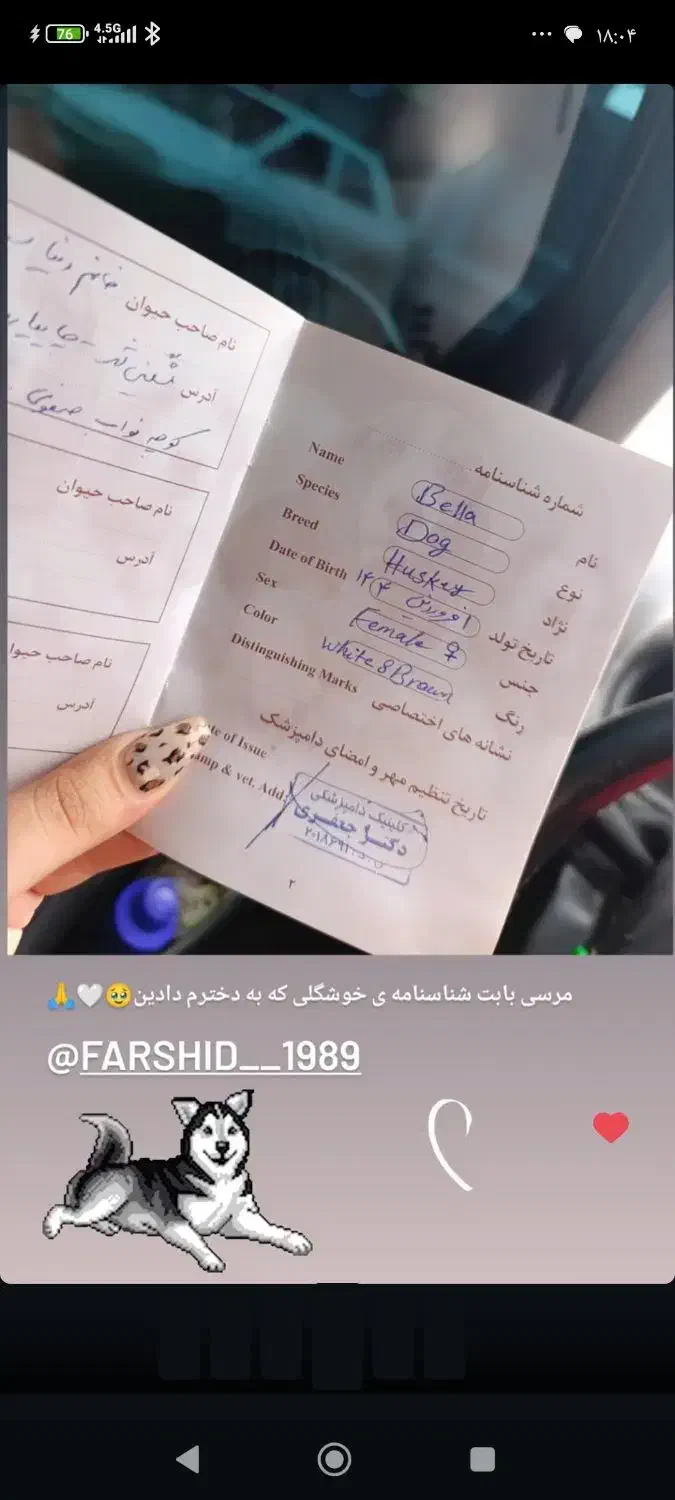 76
4.5G
۱۸:۰۴
خانم
نام صاحب حیوان
آدرس
کوچه نواب صفوی
نام صاحب حیوان
آدرس
نام صاحب حیوا
آدرس
شماره شناسنامه
Name Bella نام
Species Dog نوع
Breed Huskey نژاد
Date of Birth تاریخ تولد
Sex Female ♀ جنس
Color White & Brown رنگ
Distinguishing Marks نشانه های اختصاصی
te of Issue تاریخ تنظیم مهر و امضای دامپزشک
amp & vet. Add.
کلینیک دامپزشکی
دکتر جعفری
۲
مرسی بابت شناسنامه ی خوشگلی که به دخترم دادین🥹🤍🙏
@FARSHID__1989